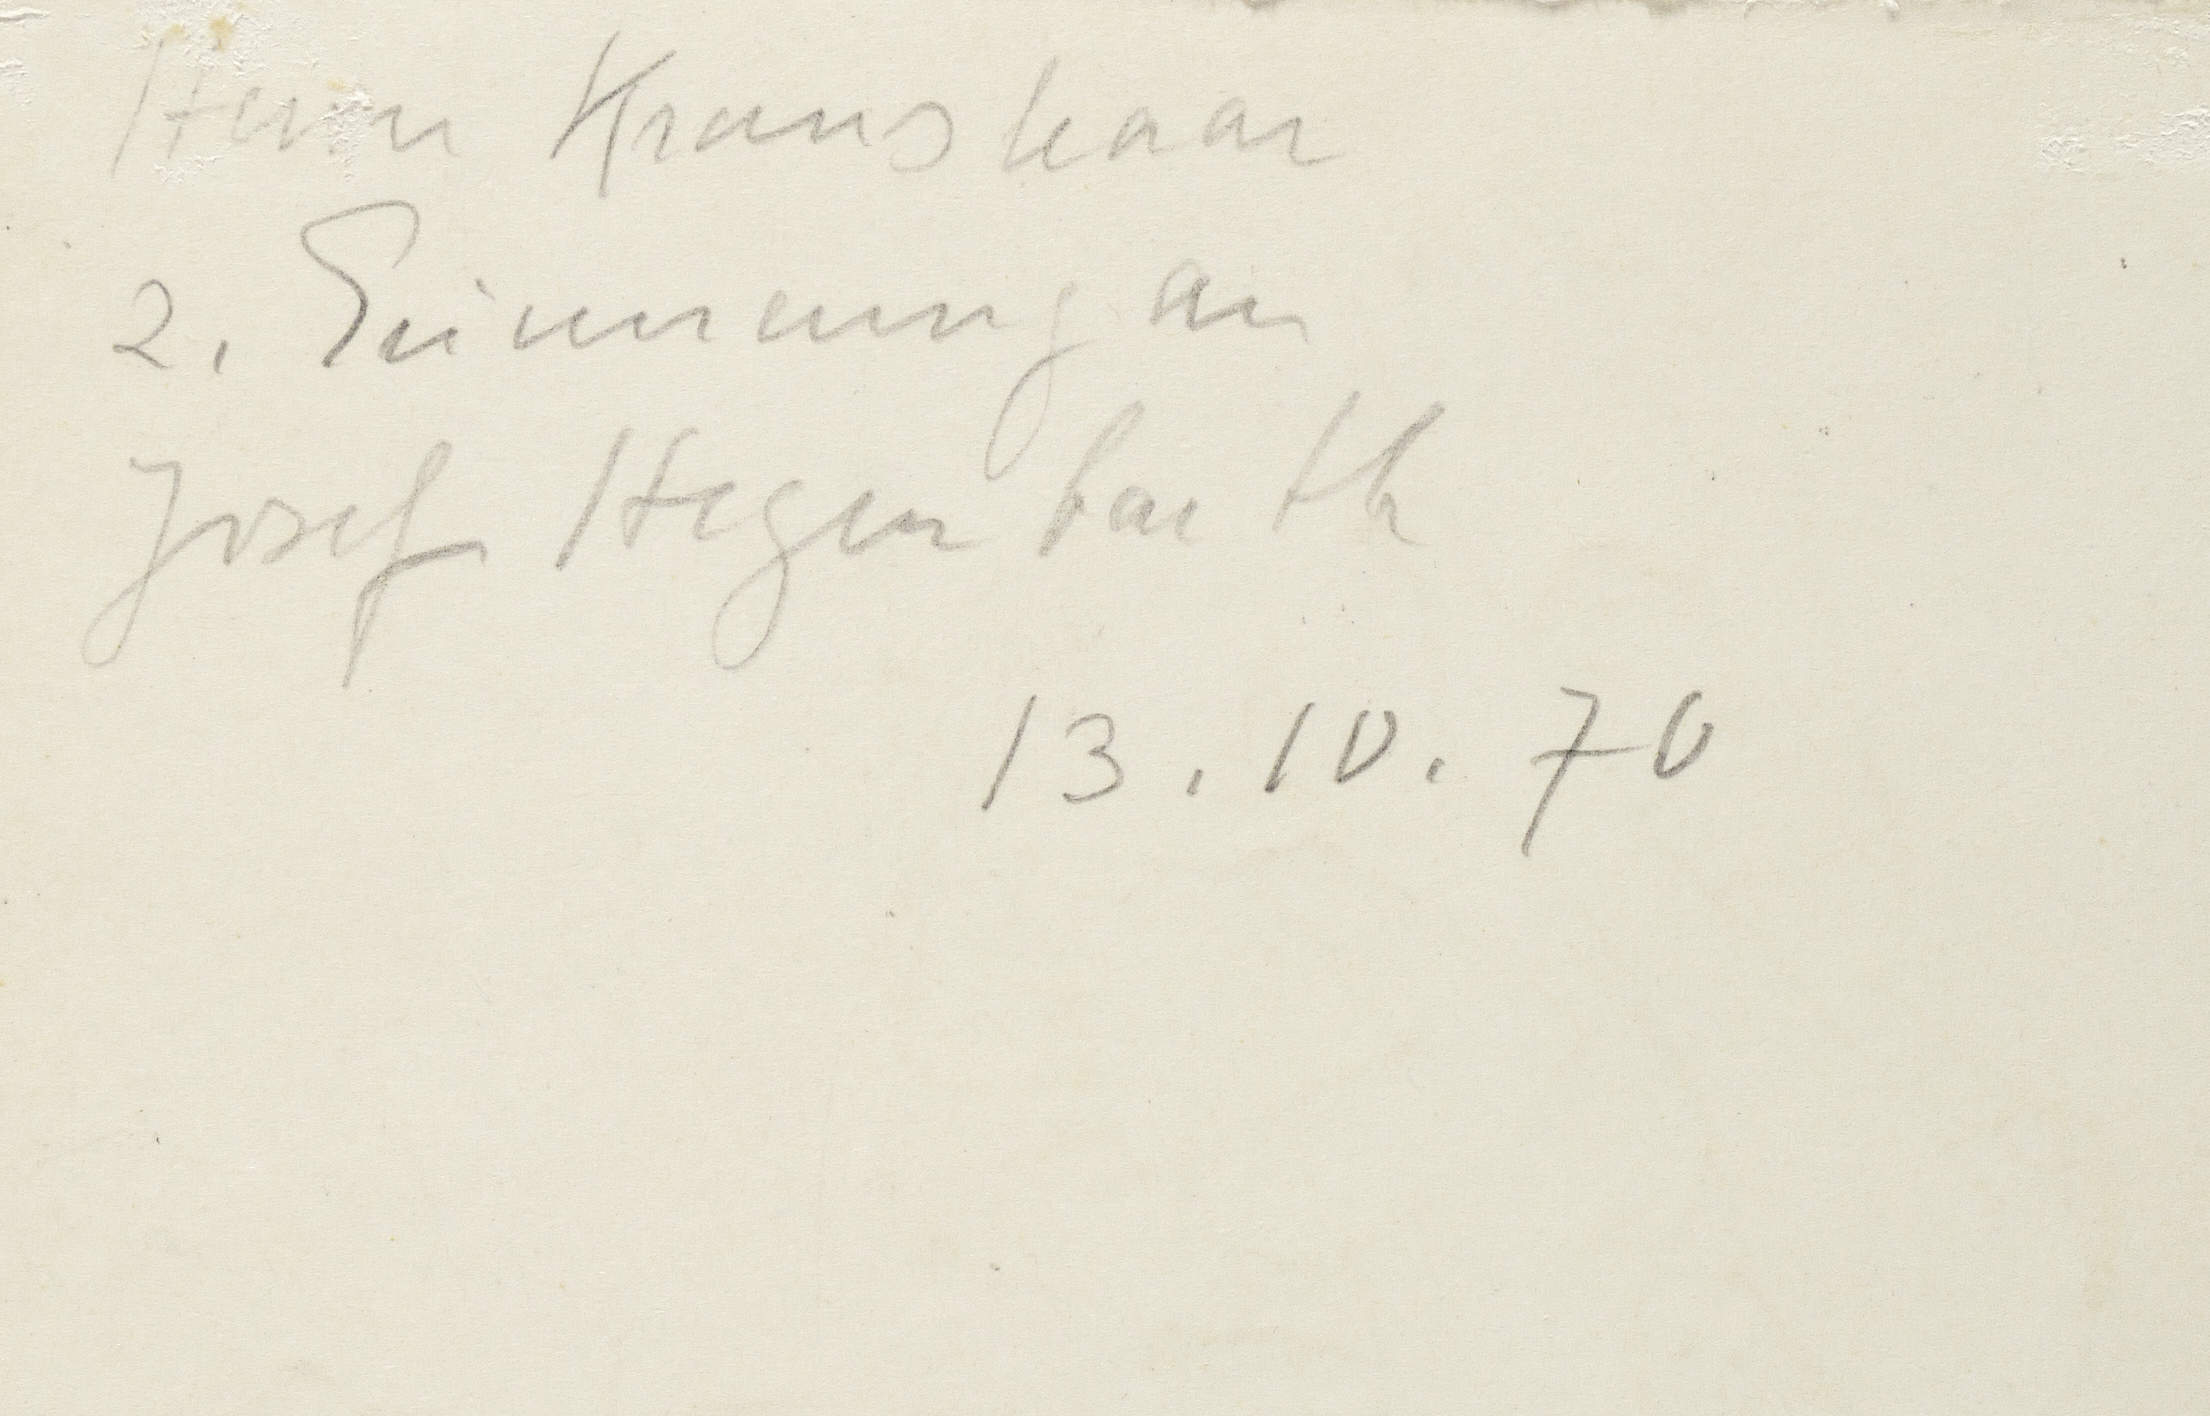 Herrn Kraushaar
z. Erinnerung an
Josef Hegenbarth
13.10.70